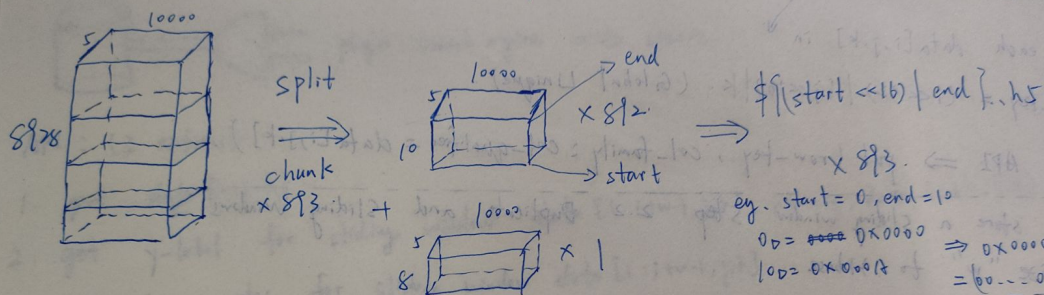 10000
5
8928
split
chunk
x 893
10000
5
10
end
start
x 892
+
10000
5
8
x 1
${(start <<16) | end}.h5
x 893.
eg. start = 0, end = 10
0D = 0x0000
10D = 0x000A
⇒ 0x0000